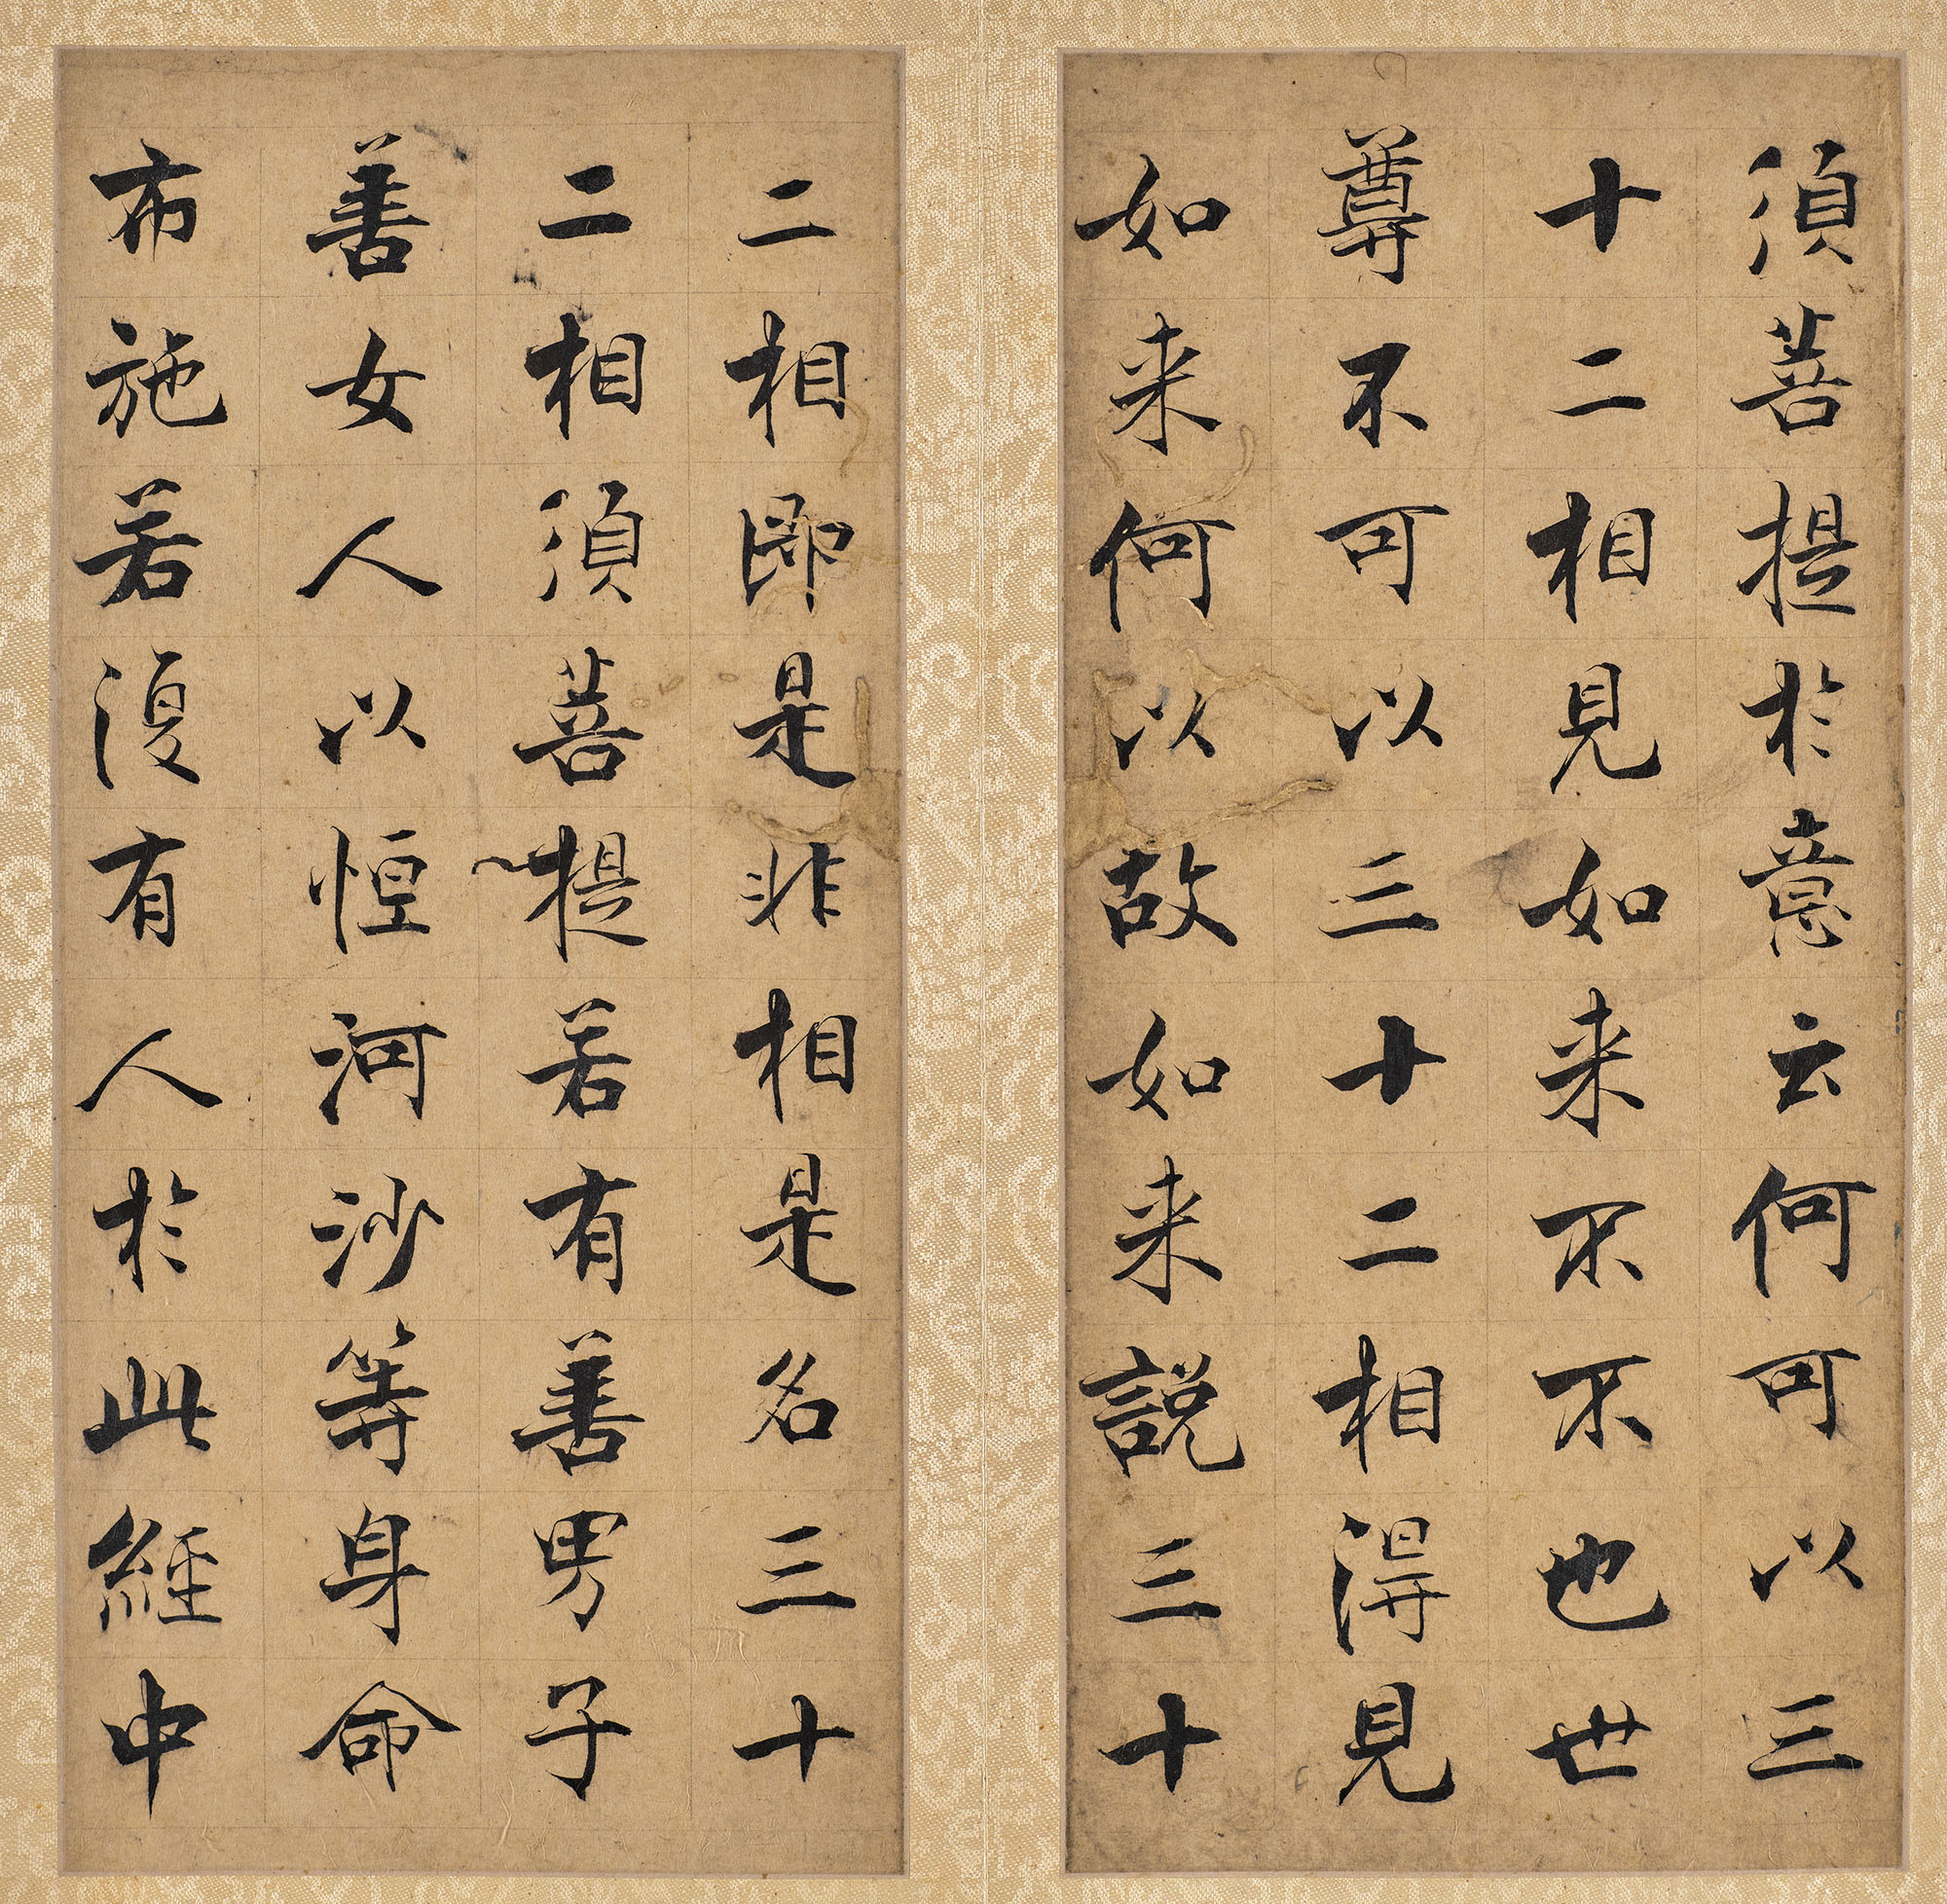 須菩提於意云何可以三
十二相見如来不不也世
尊不可以三十二相得見
如来何以故如来說三十
二相即是非相是名三十
二相須菩提若有善男子
善女人以恒河沙等身命
布施若復有人於此經中